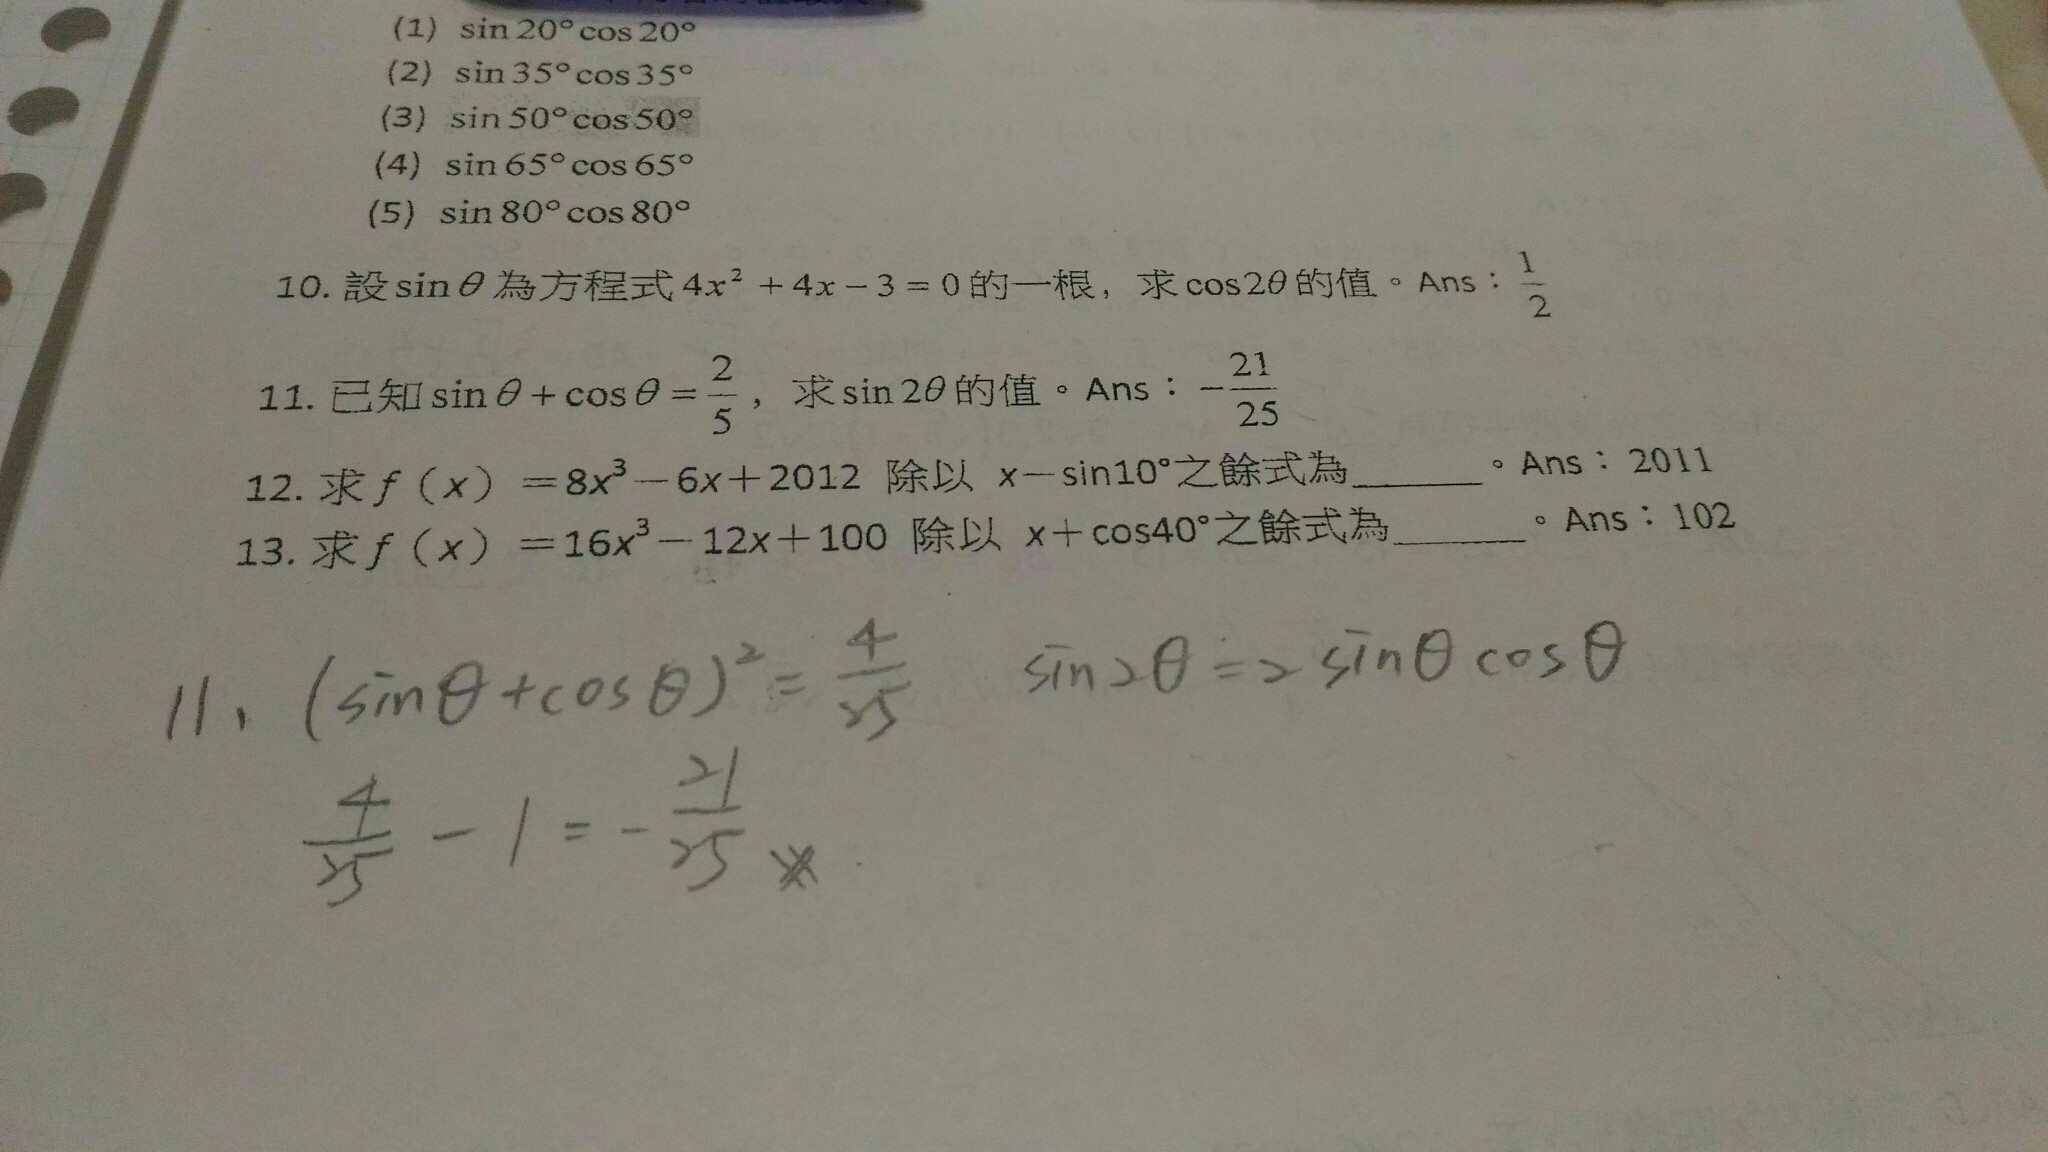 (1) sin 20° cos 20°
(2) sin 35° cos 35°
(3) sin 50° cos 50°
(4) sin 65° cos 65°
(5) sin 80° cos 80°
10. 設 sin θ 為方程式 4x² + 4x − 3 = 0 的一根，求 cos 2θ 的值。Ans：1/2
11. 已知 sin θ + cos θ = 2/5，求 sin 2θ 的值。Ans：−21/25
12. 求 f（x）＝8x³－6x＋2012 除以 x－sin10°之餘式為______。Ans：2011
13. 求 f（x）＝16x³－12x＋100 除以 x＋cos40°之餘式為______。Ans：102
11、(sinθ+cosθ)² = 4/25 sin2θ = 2 sinθ cosθ
4/25 − 1 = −21/25